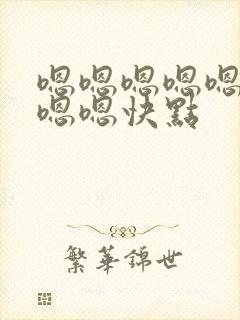 嗯嗯嗯嗯嗯
嗯嗯快點
繁華錦世